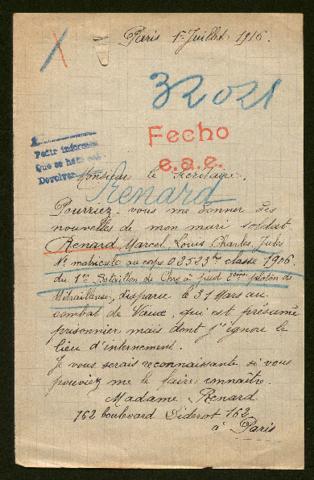 Paris 1er Juillet 1916.
32021
Fecho
e.a.e.
Pedir informes
Que se ha
Devolver
Monsieur le Secrétaire,
Renard
Pourriez-vous me donner des
nouvelles de mon mari soldat
Renard Marcel Louis Charles Jules
No matricule au corps 03523 bis classe 1906
du 1er Bataillon de Chrs à pied 2eme peloton de
Mitrailleuse, disparu le 31 Mars au
combat de Vaux, qui est présumé
prisonnier mais dont j'ignore le
lieu d'internement.
Je vous serais reconnaissante si vous
pouviez me le faire connaître.
Madame Renard
162 boulevard Diderot 162
à Paris